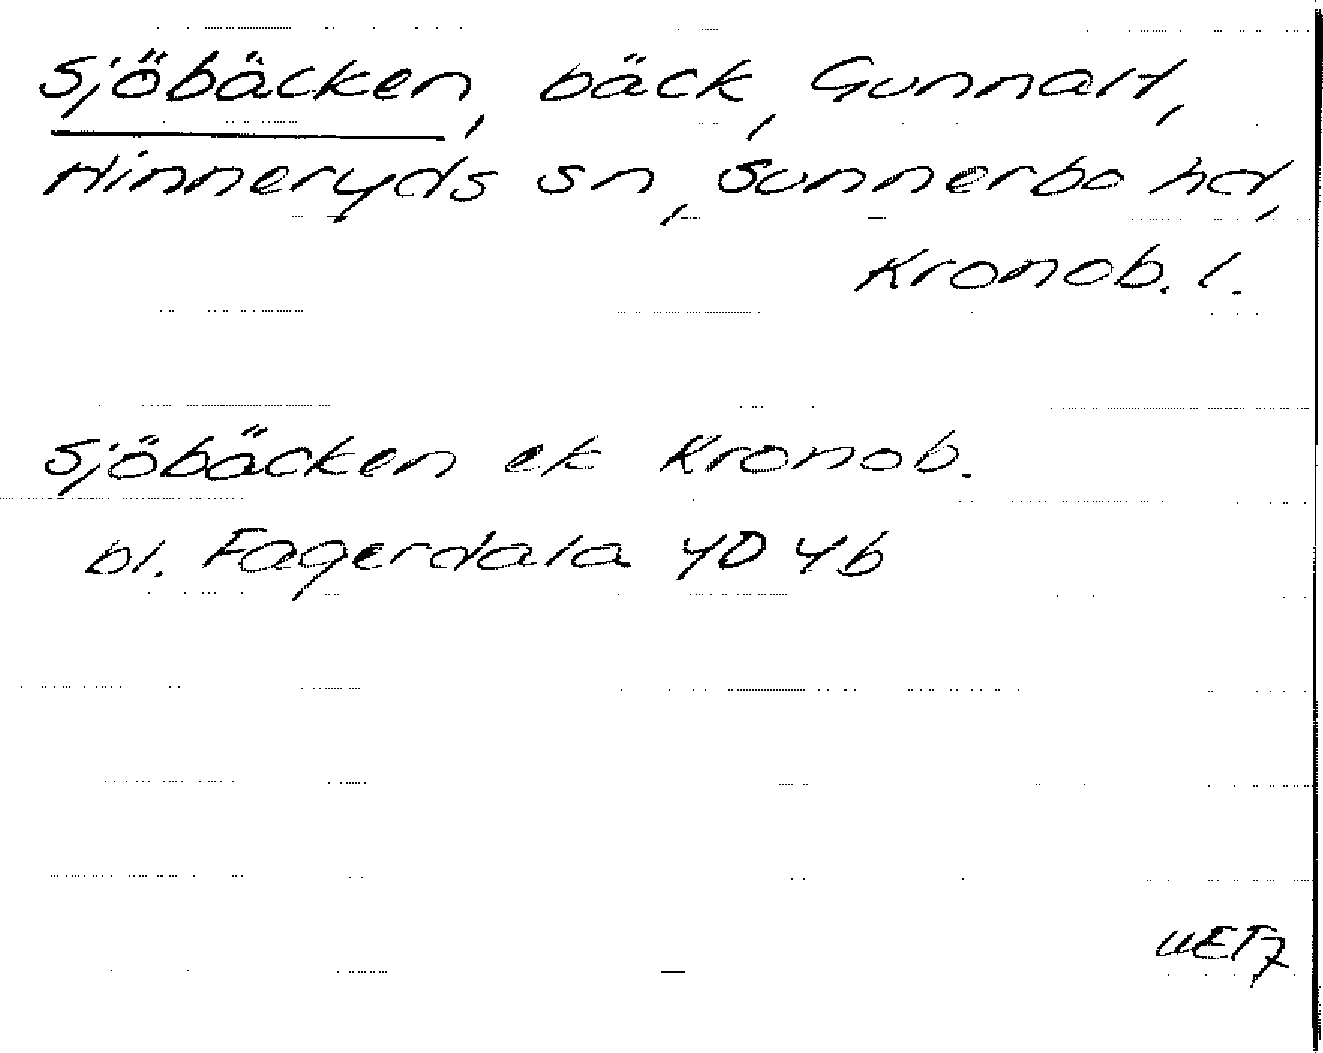 Sjöbäcken, bäck, Gunnalt,
Hinneryds sn, Sunnerbo hd,
Kronob. l.
Sjöbäcken ek Kronob.
bl. Fagerdala 4D 4b